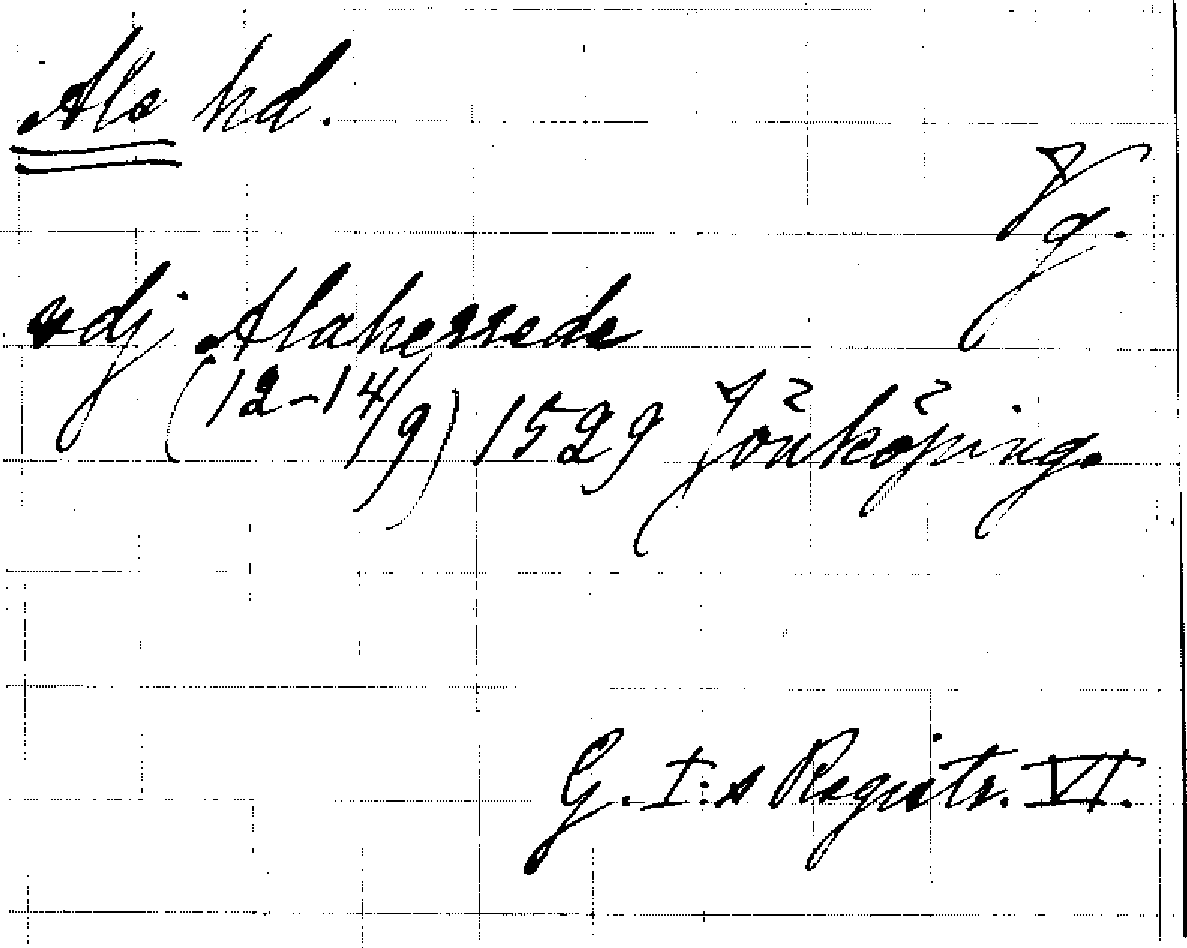 Ale hd.
Vg.
adj Alaherrade
(12-14/9) 1529 Jönköping.
G. I:s Registr. VI.